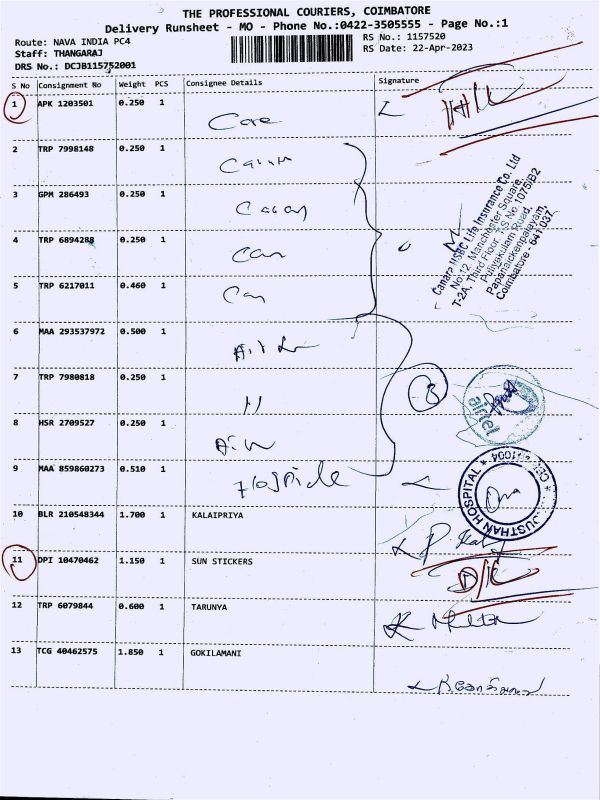 THE PROFESSIONAL COURIERS, COIMBATORE
Delivery Runsheet - MO - Phone No.:0422-3505555 - Page No.:1
Route: NAVA INDIA PC4
Staff: THANGARAJ
DRS No.: DCJB115752001
RS No.: 1157520
RS Date: 22-Apr-2023
S No Consignment No Weight PCS Consignee Details Signature
1 APK 1203501 0.250 1
2 TRP 7998148 0.250 1
3 GPM 286493 0.250 1
4 TRP 6894288 0.250 1
5 TRP 6217011 0.460 1
6 MAA 293537972 0.500 1
7 TRP 7980818 0.250 1
8 HSR 2709527 0.250 1
9 MAA 859860273 0.510 1
10 BLR 210548344 1.700 1 KALAIPRIYA
11 DPI 10470462 1.150 1 SUN STICKERS
12 TRP 6079844 0.600 1 TARUNYA
13 TCG 40462575 1.850 1 GOKILAMANI
Canara HSBC Life Insurance Co. Ltd
No:12, Manchester Square,
T-2A, Third Floor, T.S No 1075/B2
Puliyakulam Road,
Papanaickenpalayam,
Coimbatore - 641 037.
airtel
JUSTHAN HOSPITAL